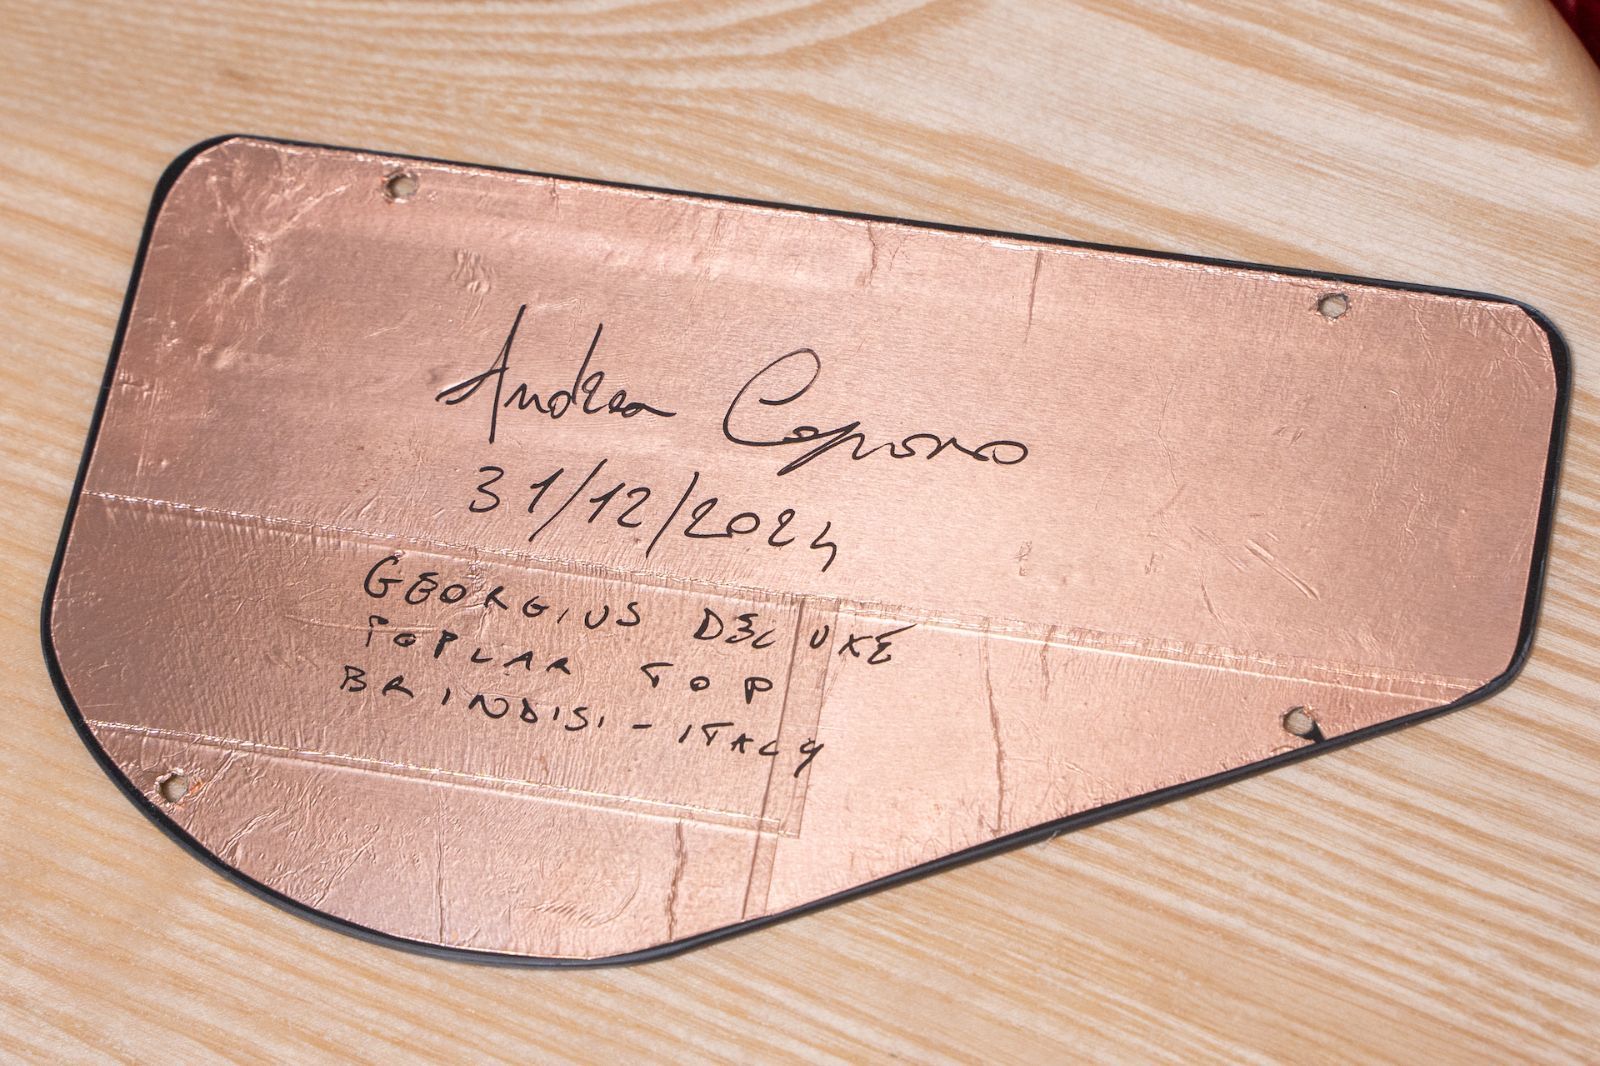 Andrea Caporo
31/12/2024
GEORGIUS DELUXE
POPLAR TOP
BRINDISI - ITALY